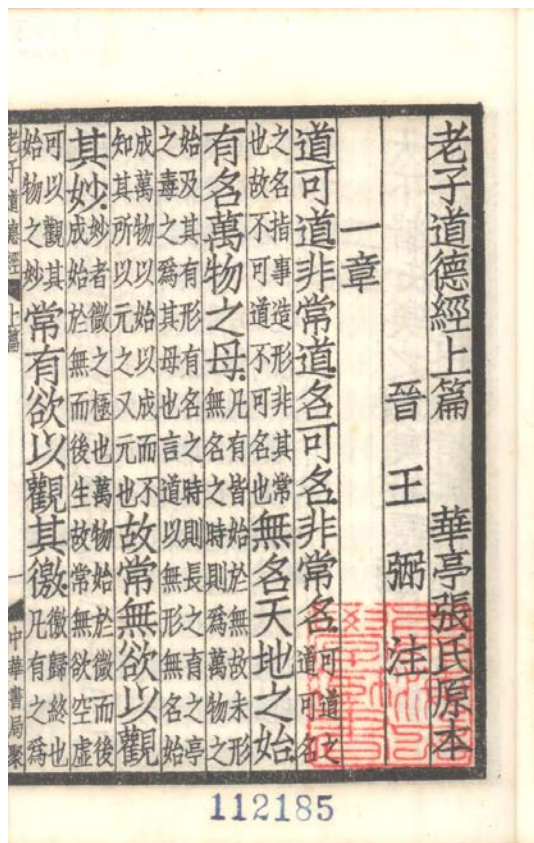 老子道德經上篇　華亭張氏原本
晉王弼注
一章
道可道非常道名可名非常名可道之道可名
之名指事造形非其常也故不可道不可名也無名天地之始
有名萬物之母凡有皆始於無故未形無名之時則爲萬物之
始及其有形有名之時則長之育之亭之毒之爲其母也言道以無形無名始
成萬物以始以成而不知其所以元之又元也故常無欲以觀
其妙妙者微之極也萬物始於微而後成始於無而後生故常無欲空虛
可以觀其始物之妙常有欲以觀其徼徼歸終也凡有之爲
老子道德經 上篇 一 中華書局聚
112185